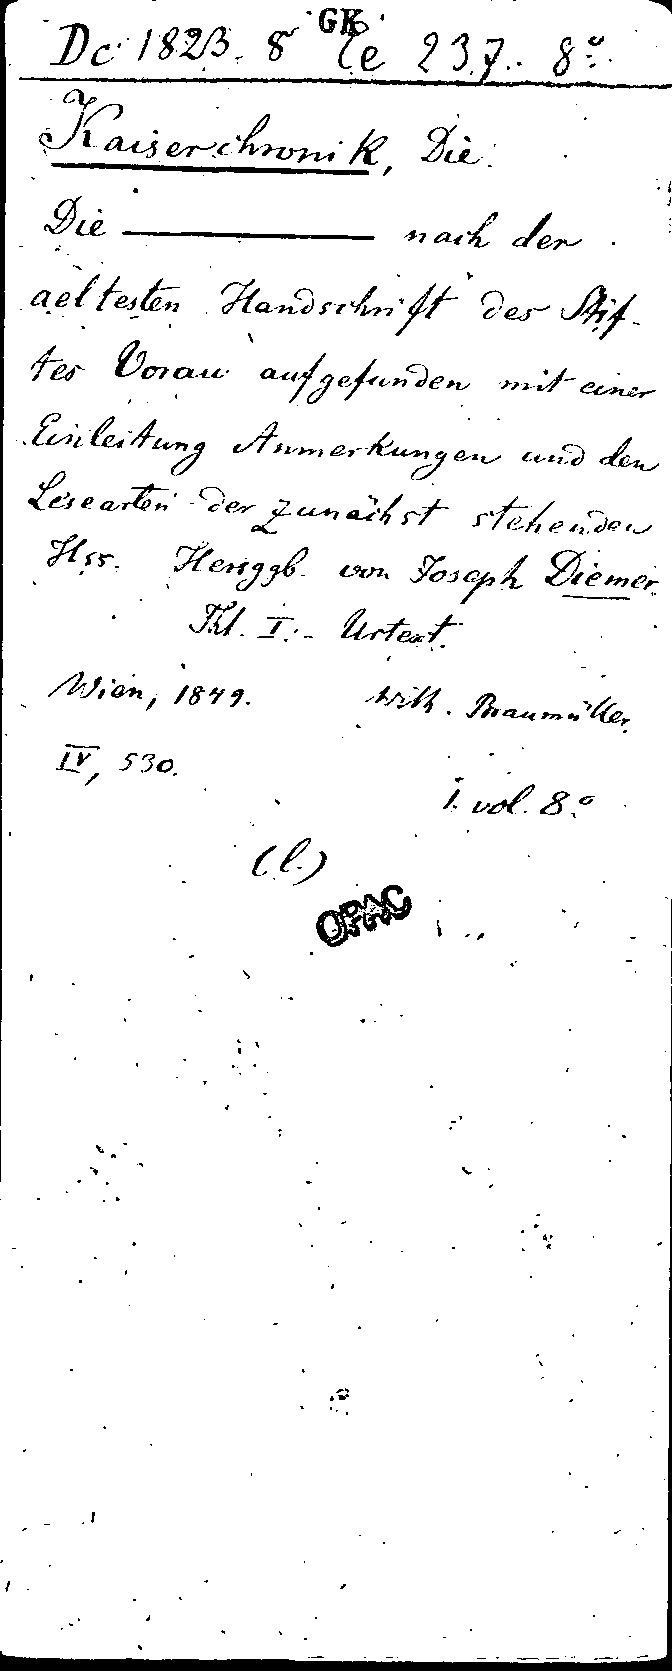 GK
Dc 1823. 8° Ce 237. 8°.
Kaiserchronik, Die.
Die ——— nach der
aeltesten Handschrift des Stif-
tes Vorau aufgefunden mit einer
Einleitung Anmerkungen und den
Lesearten der zunächst stehenden
Hss. Herausggb. von Joseph Diemer.
Thl. I: Urtext.
Wien, 1849. Wilh. Braumüller.
IV, 530.
1. vol. 8°
(l.)
OPAC